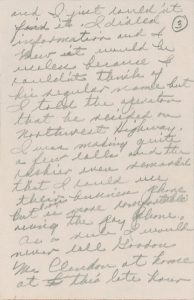 and I just could n't
find it. I dialed
information and I
knew it would be
useless because I
couldn't think of
his regular name but
I told the operator
that he resided on
Northwest Highway.
I was making quite
a few calls and the
cashier even remarked
that I could use
their business phone
but is more comfortable
using the pay phone.
As a rule I would
never call Gordon
McClendon at home
at this late hour